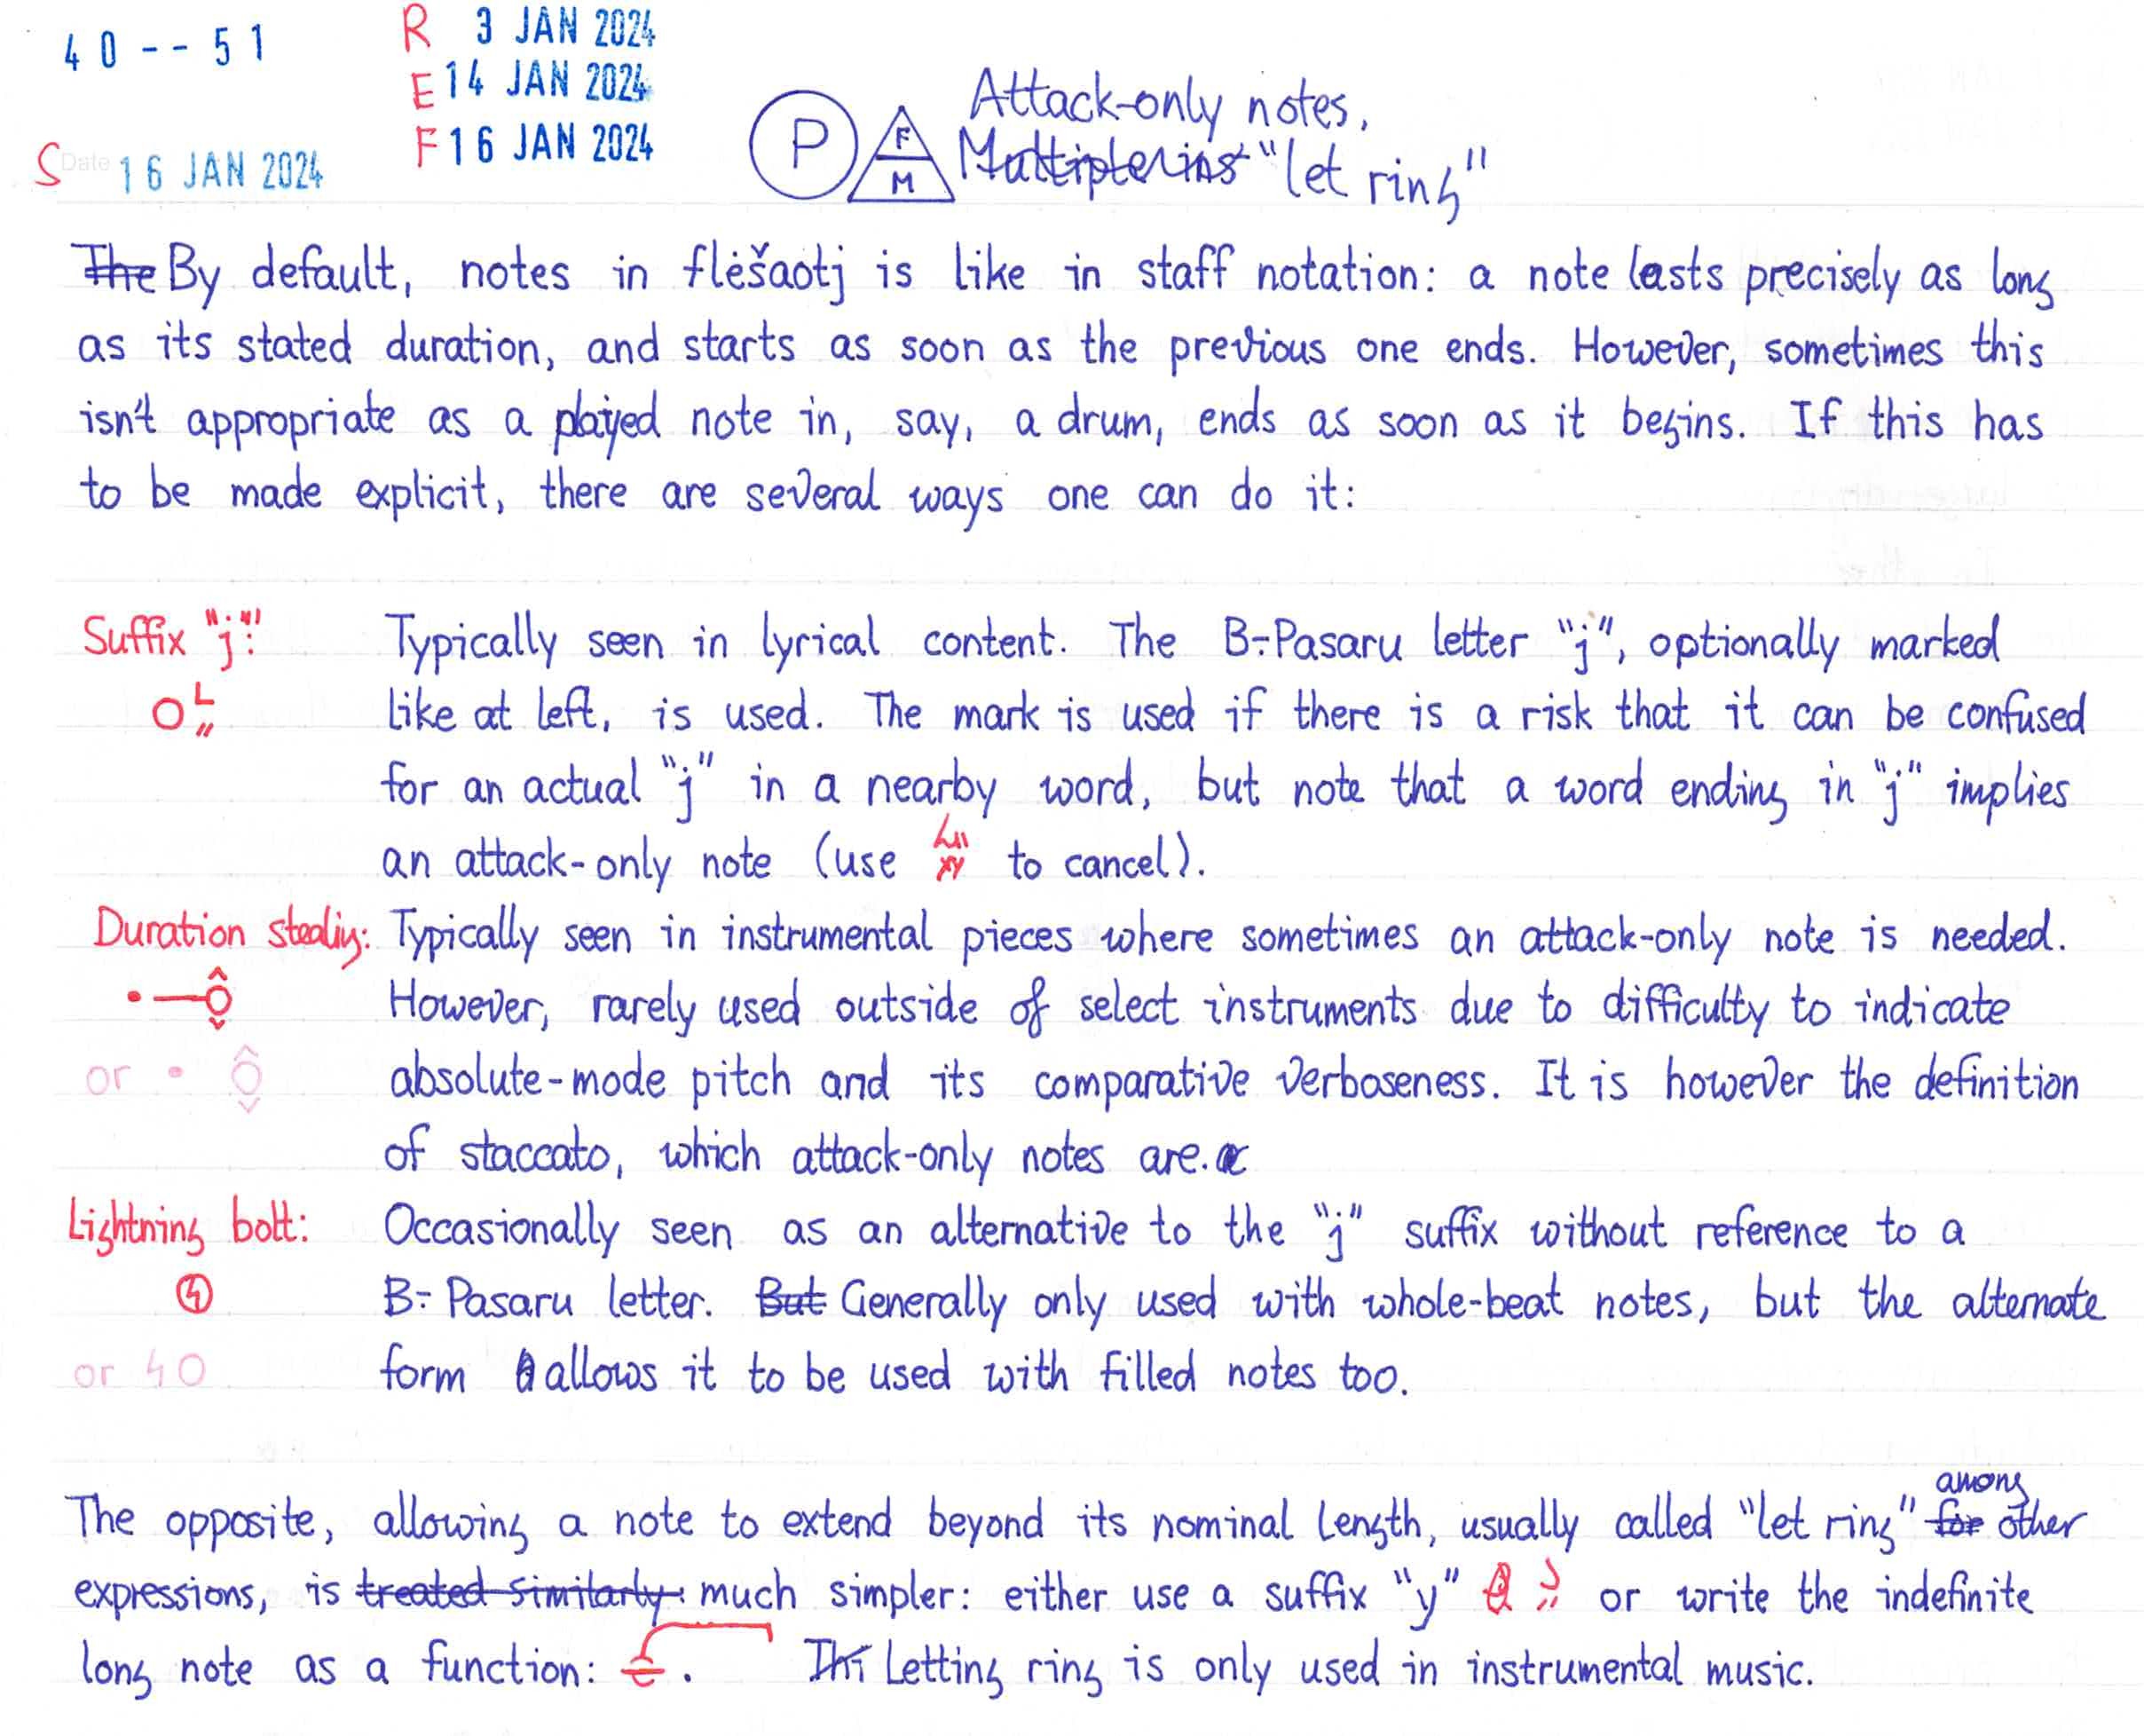 40--51
R 3 JAN 2024
E 14 JAN 2024
F 16 JAN 2024
S Date 16 JAN 2024
P F M
Attack-only notes,
Multiplexing "let ring"
The By default, notes in flėšaotj is like in staff notation: a note lasts precisely as long
as its stated duration, and starts as soon as the previous one ends. However, sometimes this
isn't appropriate as a played note in, say, a drum, ends as soon as it begins. If this has
to be made explicit, there are several ways one can do it:
Suffix "j":
Typically seen in lyrical content. The B-Pasaru letter "j", optionally marked
like at left, is used. The mark is used if there is a risk that it can be confused
for an actual "j" in a nearby word, but note that a word ending in "j" implies
an attack-only note (use to cancel).
Duration stealing: Typically seen in instrumental pieces where sometimes an attack-only note is needed.
However, rarely used outside of select instruments due to difficulty to indicate
or absolute-mode pitch and its comparative verboseness. It is however the definition
of staccato, which attack-only notes are.
Lightning bolt: Occasionally seen as an alternative to the "j" suffix without reference to a
B-Pasaru letter. But Generally only used with whole-beat notes, but the alternate
or form allows it to be used with filled notes too.
The opposite, allowing a note to extend beyond its nominal length, usually called "let ring" for among other
expressions, is treated similarly: much simpler: either use a suffix "y" or write the indefinite
long note as a function: . Letting ring is only used in instrumental music.